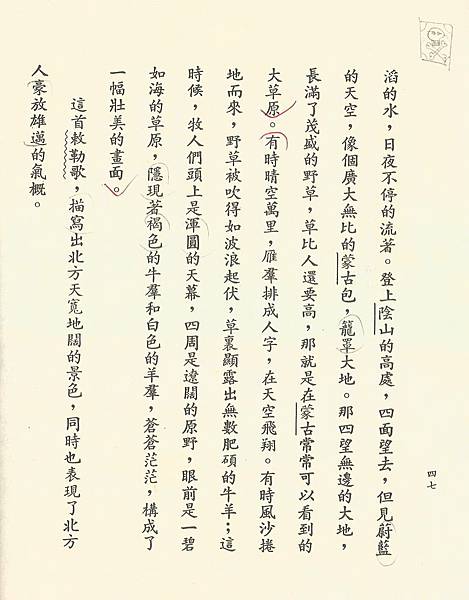 滔的水，日夜不停的流著。登上陰山的高處，四面望去，但見蔚藍
的天空，像個廣大無比的蒙古包，籠罩大地。那四望無邊的大地，
長滿了茂盛的野草，草比人還要高，那就是在蒙古常常可以看到的
大草原。有時晴空萬里，雁羣排成人字，在天空飛翔。有時風沙捲
地而來，野草被吹得如波浪起伏，草裏顯露出無數肥碩的牛羊；這
時候，牧人們頭上是渾圓的天幕，四周是遼闊的原野，眼前是一碧
如海的草原，隱現著褐色的牛羣和白色的羊羣，蒼蒼茫茫，構成了
一幅壯美的畫面。
這首敕勒歌，描寫出北方天寬地闊的景色，同時也表現了北方
人豪放雄邁的氣概。
四七